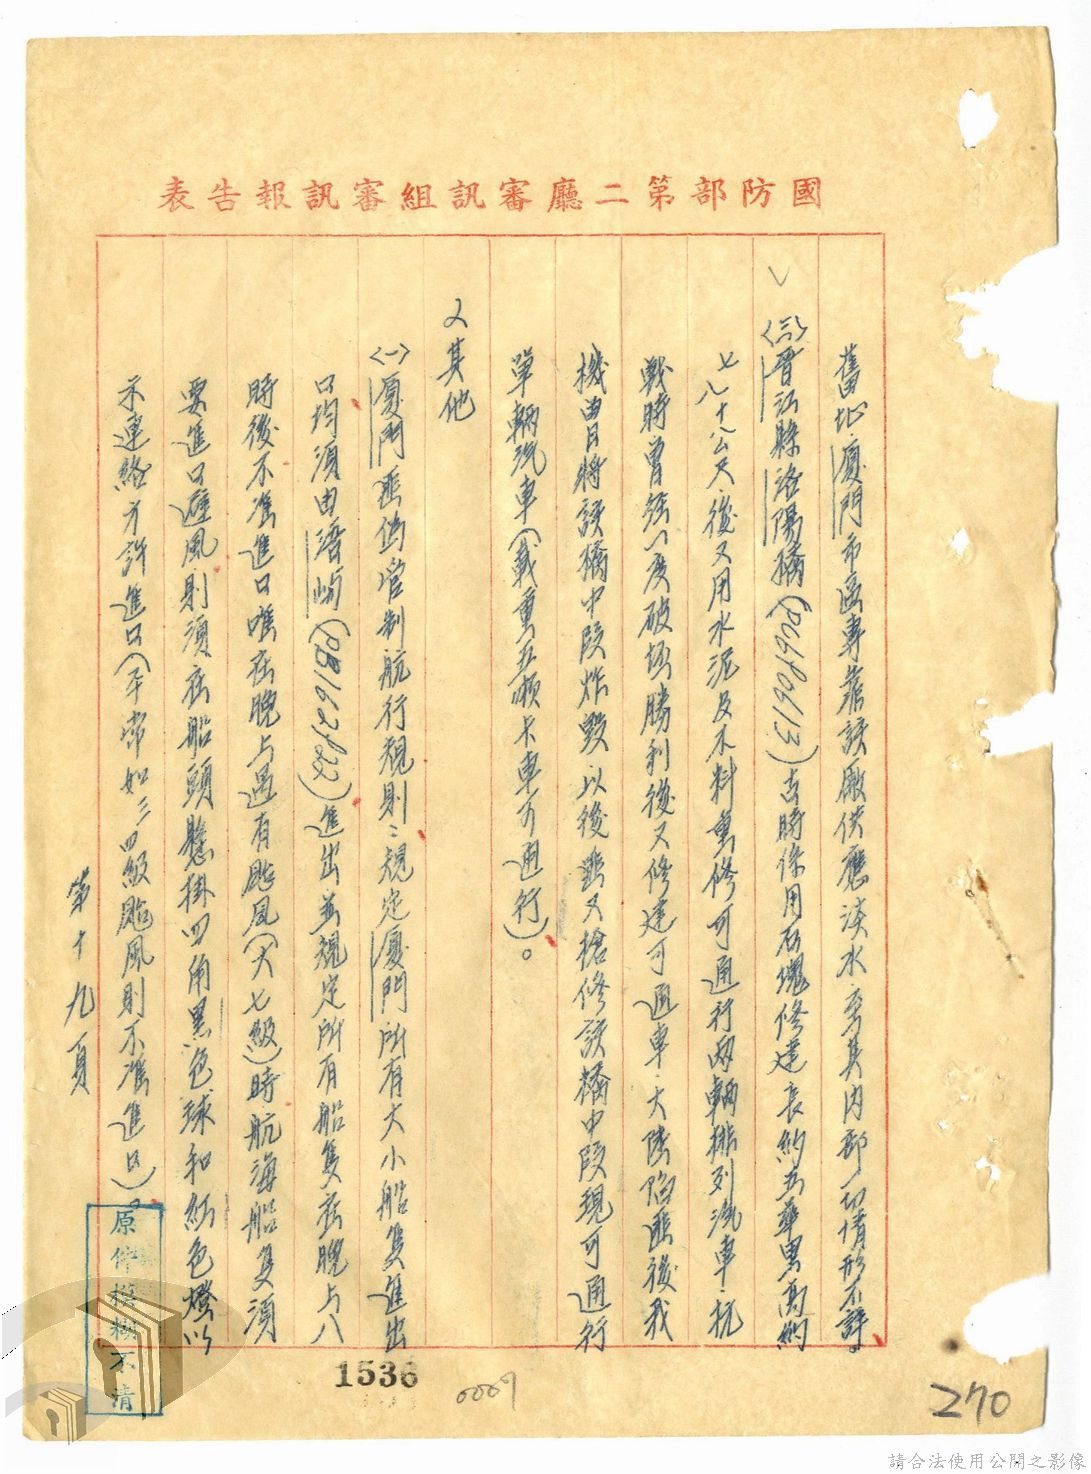 國防部第二廳審訊組審訊報告表
舊址廈門市區專靠該廠供應淡水至其內部一切情形不詳。
㈢晉江縣洛陽橋()古時係用石塊修建長約五華里高約
七八十公尺後又用水泥及木料重修可通行兩輛排列汽車抗
戰時曾經一度破壞勝利後又修建可通車大陸陷匪後我
機曾將該橋中段炸毀以後匪又搶修該橋中段現可通行
單輛汽車(載重五噸卡車可通行)。
其他
㈠廈門匪偽管制航行規則:規定廈門所有大小船隻進出
口均須由浯嶼()進出並規定所有船隻在晚上八
時後不准進口唯在晚上遇有颱風(大七級)時航海船隻須
要進口避風則須在船頭懸掛四角黑色球和紅色燈以
示連絡方許進口(平常如三四級颱風則不准進口)。
第十九頁
原件模糊不清
1536
0009
270
請合法使用公開之影像